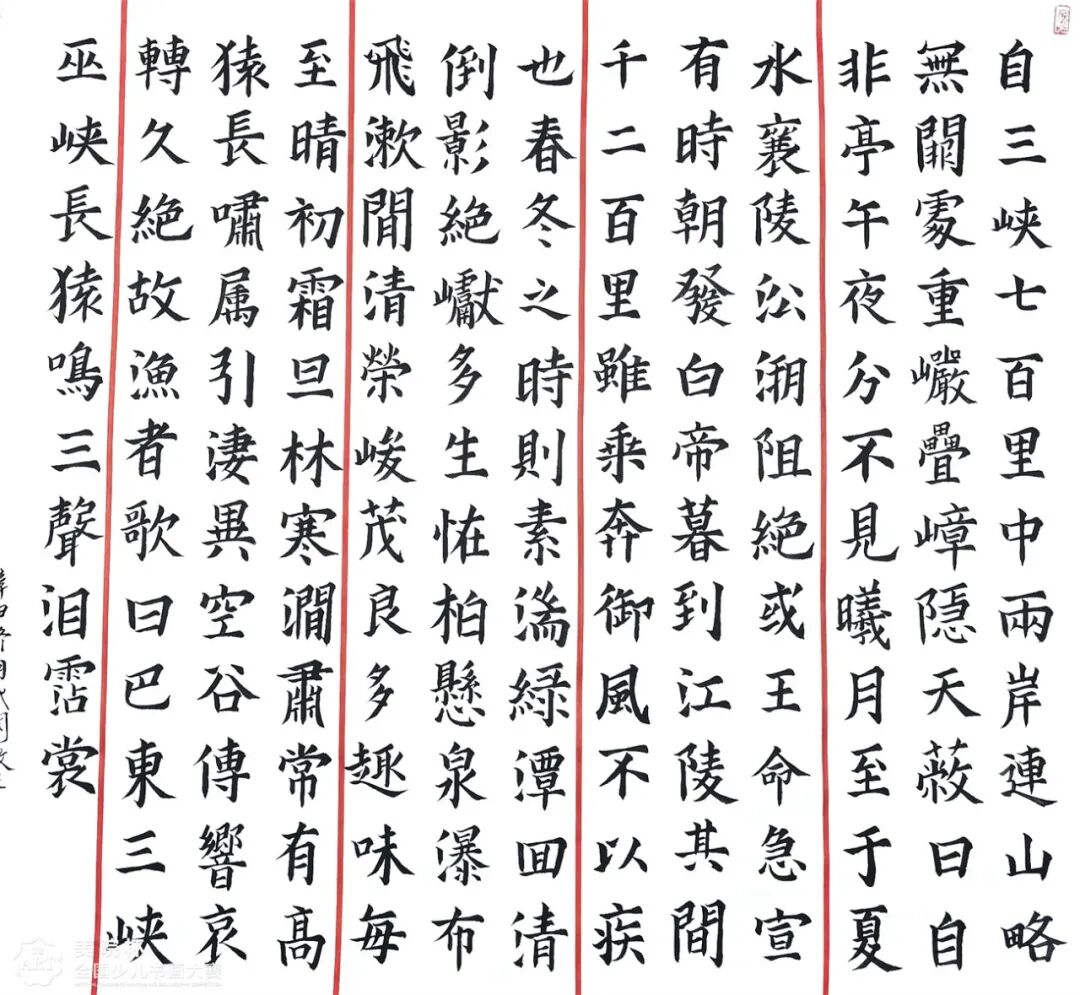 自三峡七百里中兩岸連山略
無闕處重巗疊嶂隱天蔽日自
非亭午夜分不見曦月至于夏
水襄陵㳂溯阻絶或王命急宣
有時朝發白帝暮到江陵其間
千二百里雖乘奔御風不以疾
也春冬之時則素湍緑潭回清
倒影絶巘多生恠柏懸泉瀑布
飛漱間清榮峻茂良多趣味每
至晴初霜旦林寒澗肅常有高
猿長嘯属引淒異空谷傳響哀
轉久絶故漁者歌曰巴東三峡
巫峡長猿鳴三聲泪霑裳
全国少儿书画大赛